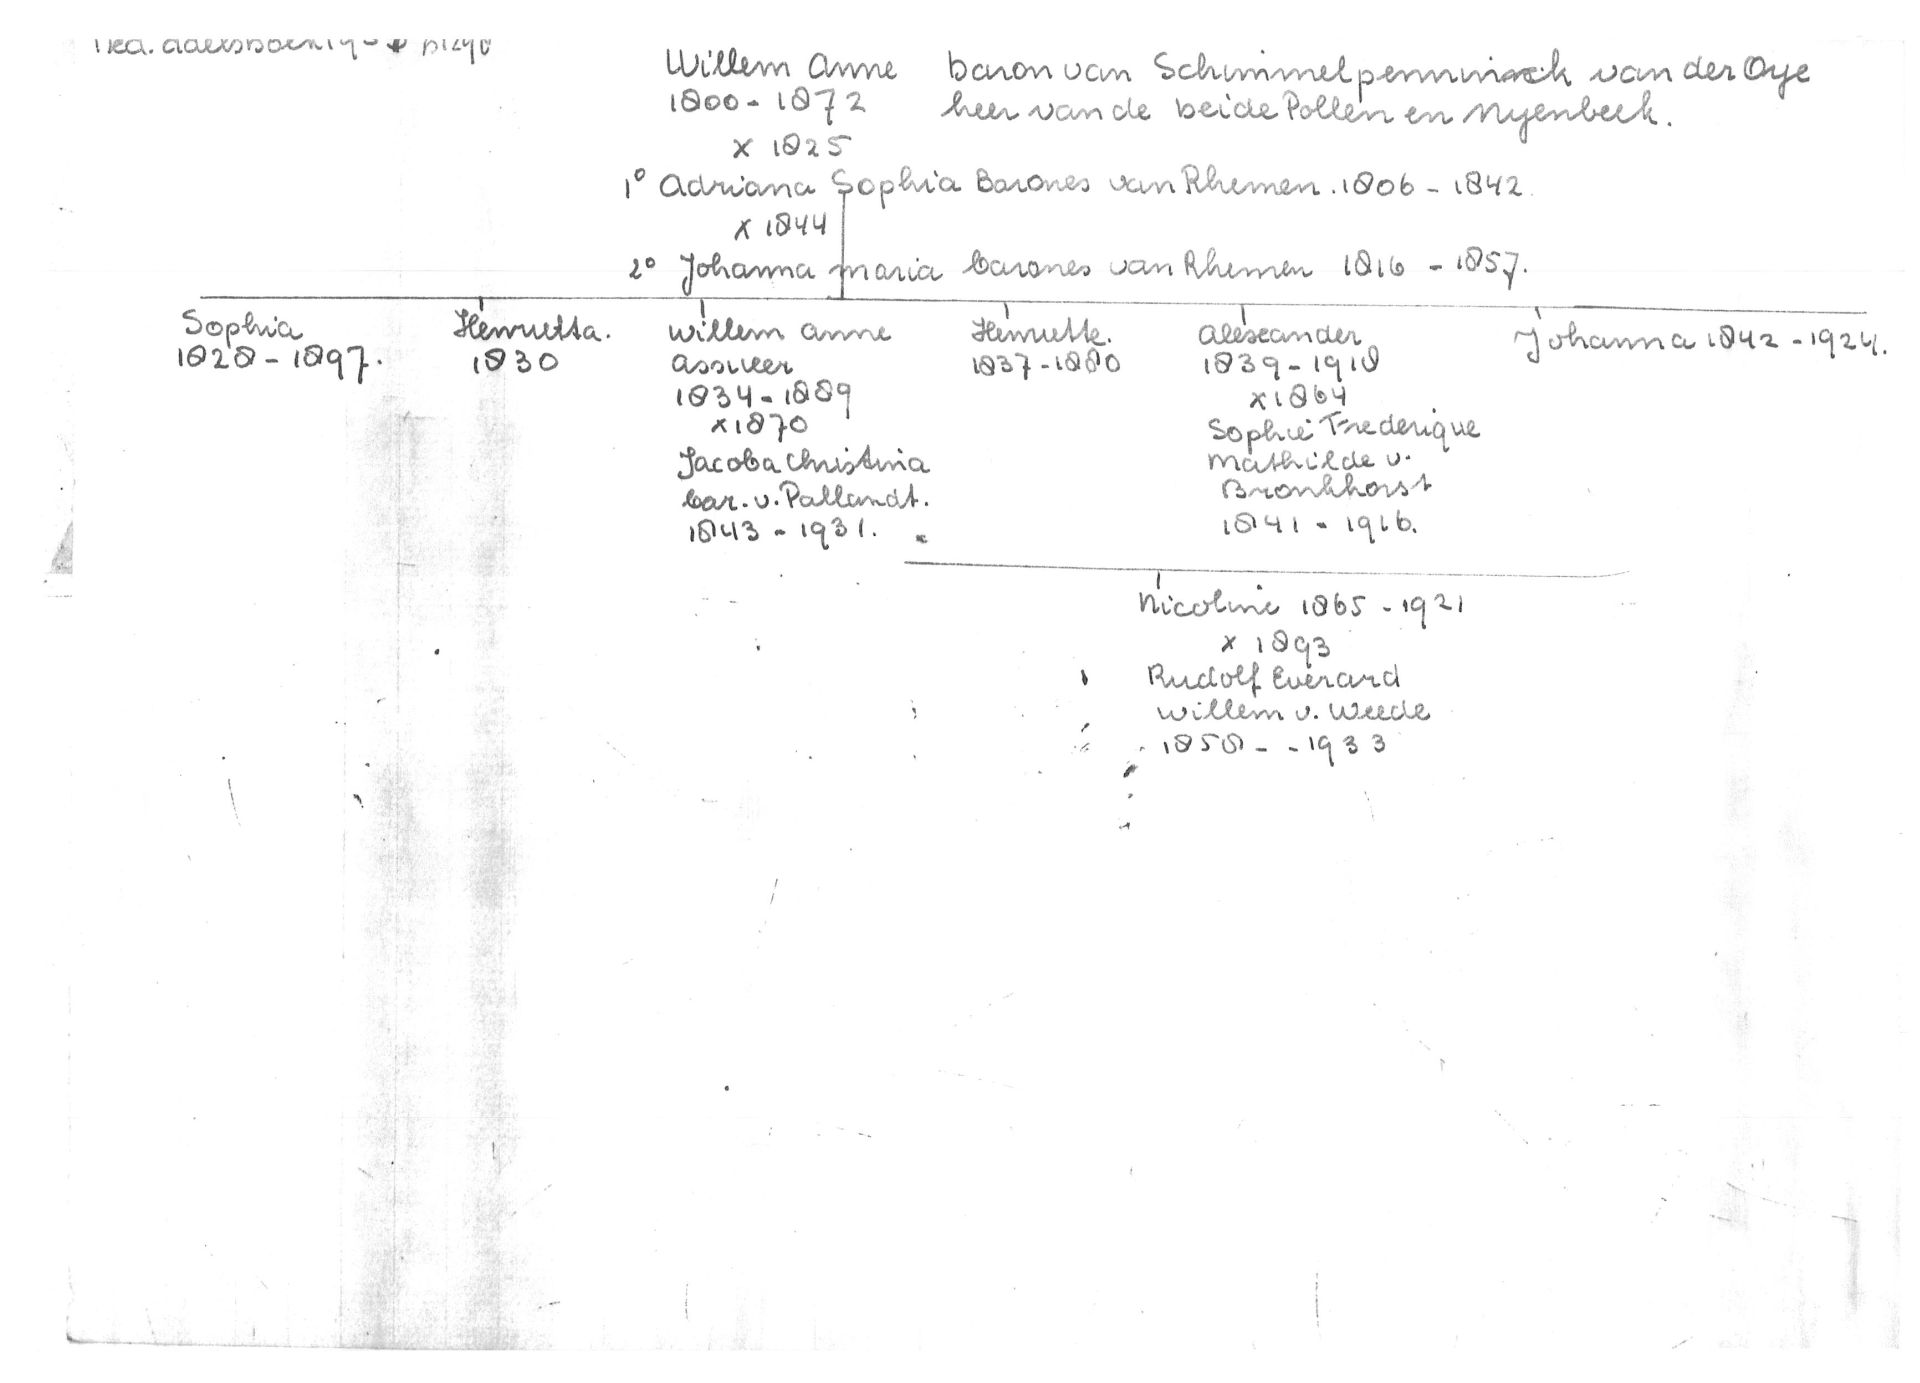 Ned. adelsboek
Willem Anne baron van Schimmelpenninck van der Oye
1800 - 1872 heer van de beide Pollen en Nyenbeek.
x 1825
1° Adriana Sophia Barones van Rhemen. 1806 - 1842.
x 1844
2° Johanna Maria barones van Rhemen 1816 - 1857.
Sophia
1828 - 1897.
Henrietta.
1830
Willem Anne
Assueer
1834 - 1889
x 1870
Jacoba Christina
bar. v. Pallandt.
1843 - 1931.
Henriette.
1837 - 1880
Alexander
1839 - 1918
x 1864
Sophie Frederique
Mathilde v.
Bronkhorst
1841 - 1916.
Johanna 1842 - 1924.
Nicoline 1865 - 1921
x 1893
Rudolf Everard
Willem v. Weede
1858 - - 1933